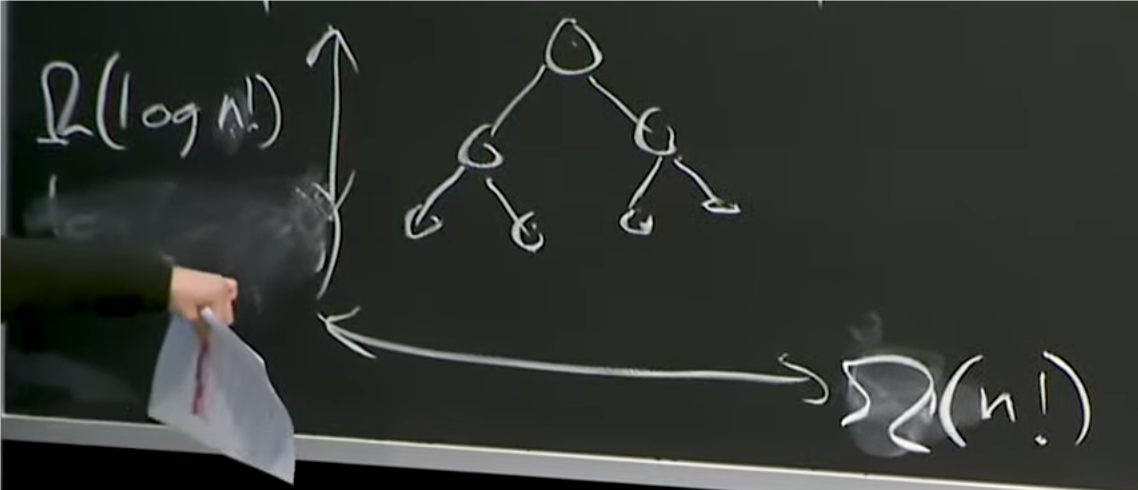 Ω(log n!)
Ω(n!)